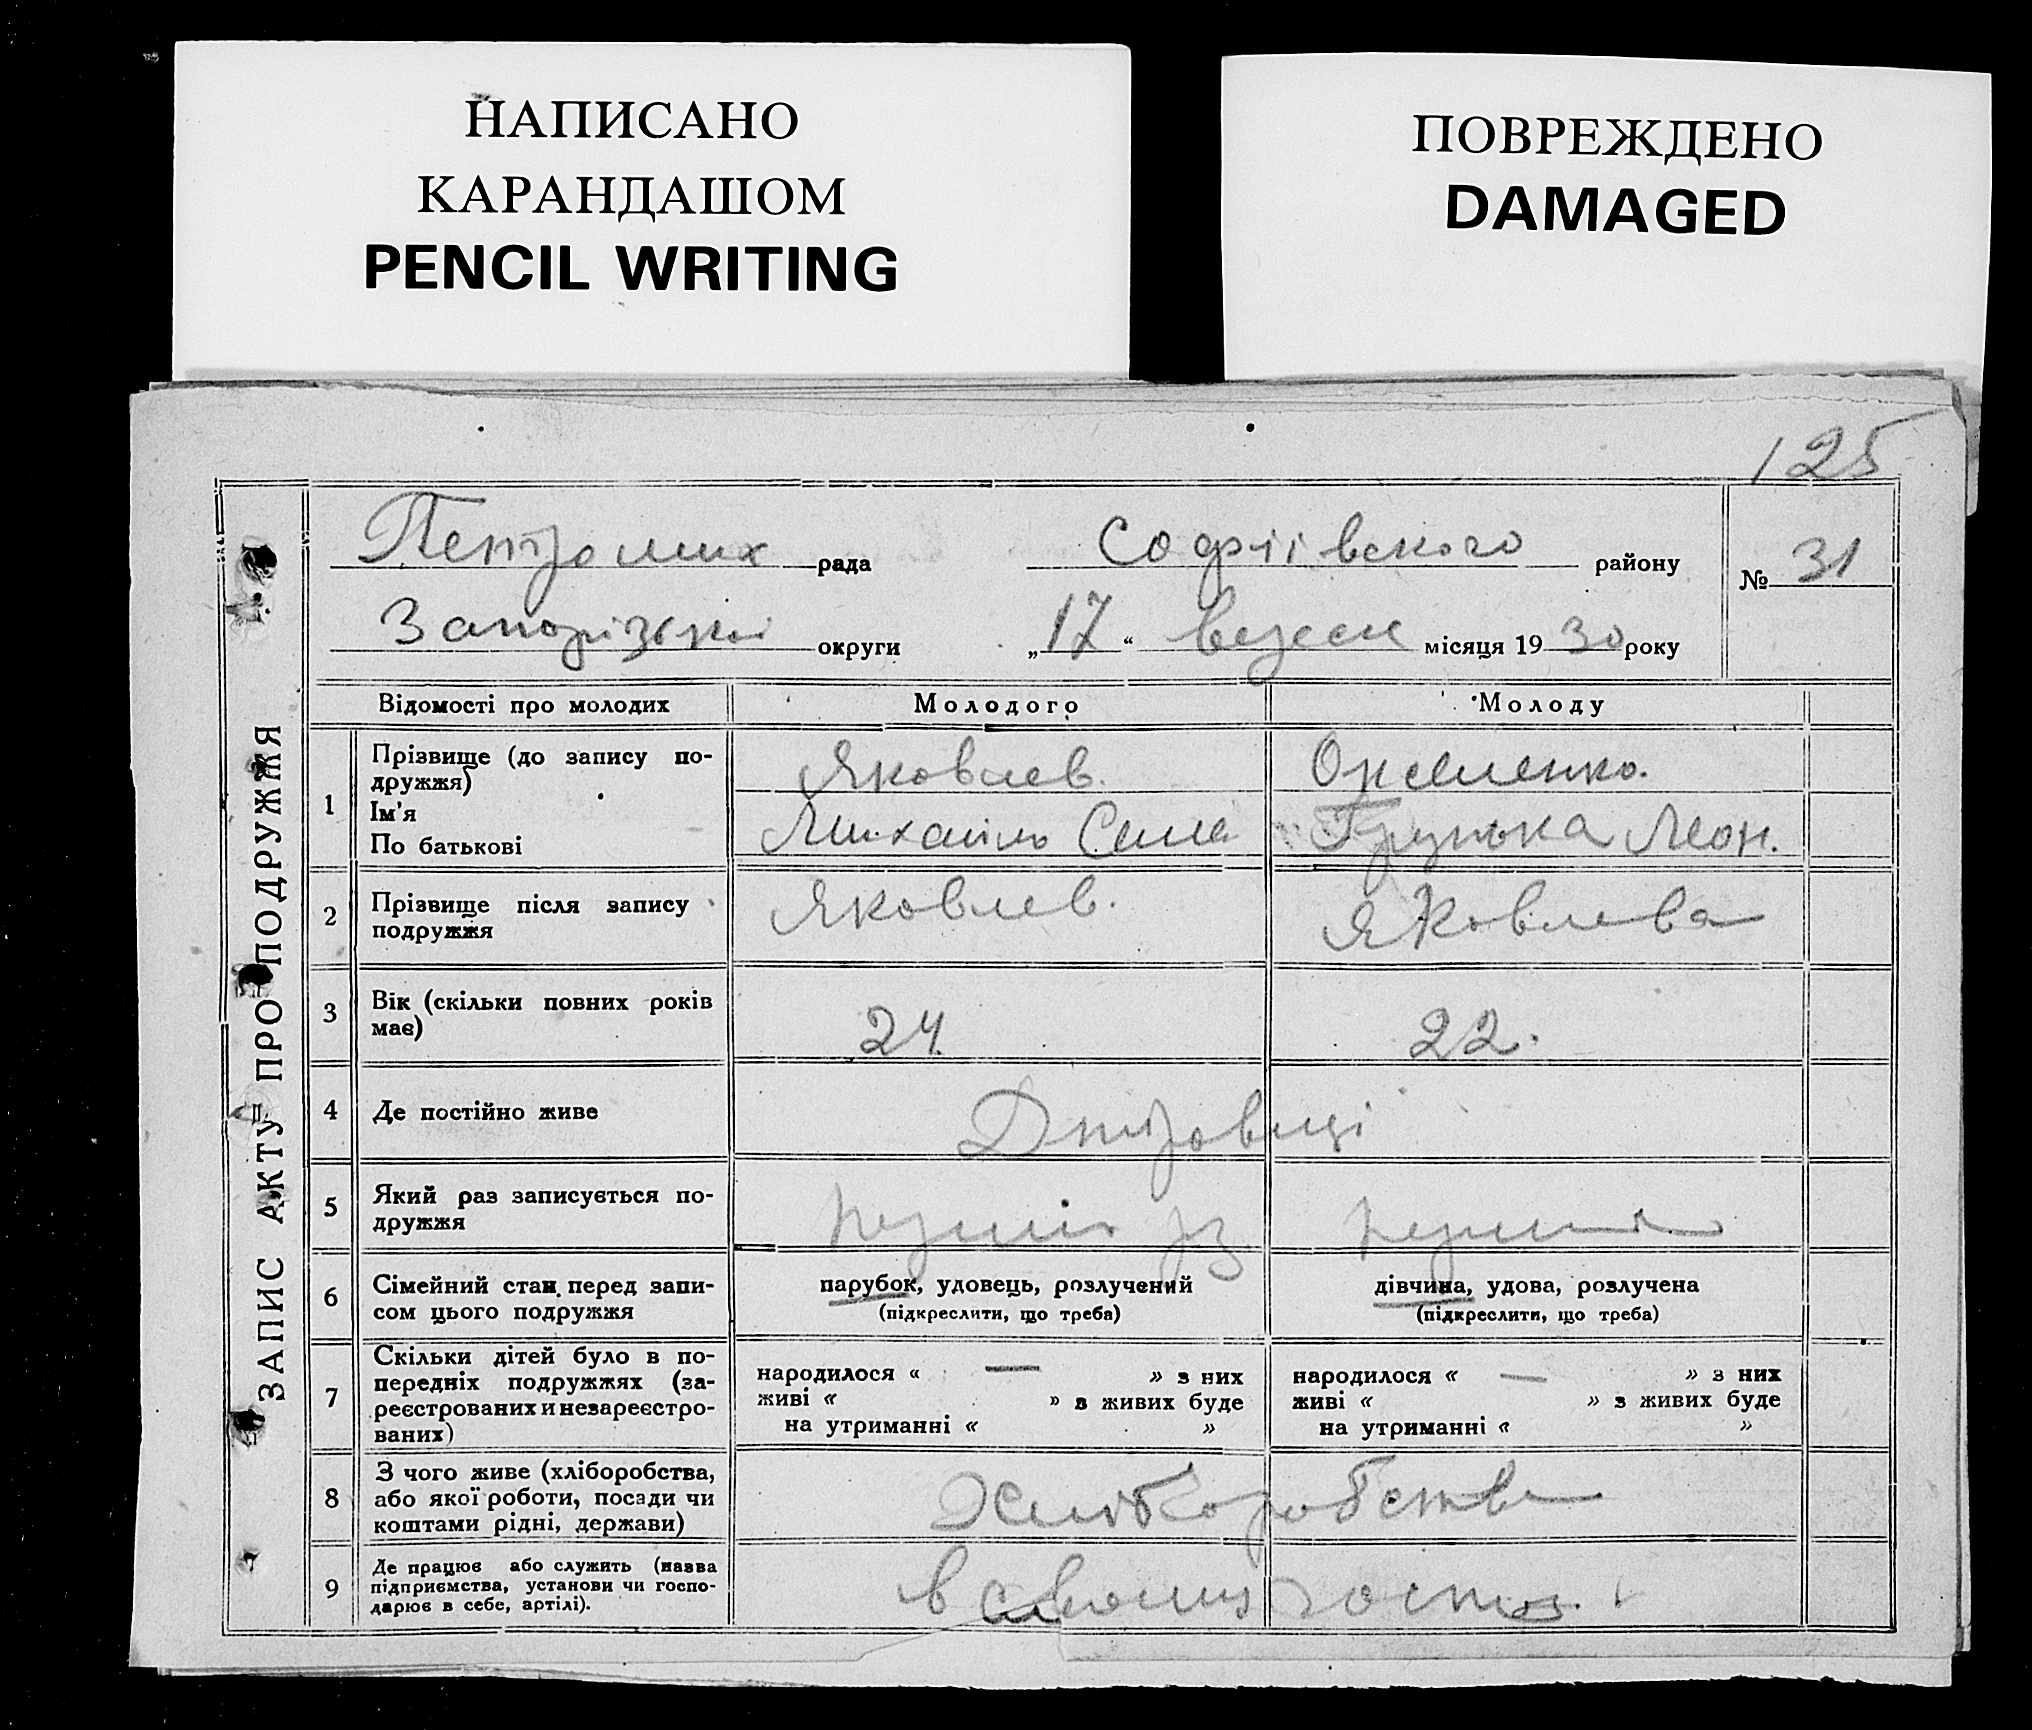 НАПИСАНО
КАРАНДАШОМ
PENCIL WRITING
ПОВРЕЖДЕНО
DAMAGED
125
ЗАПИС АКТУ ПРО ПОДРУЖЖЯ
рада Софіівского району
№ 31
округи „17“ місяця 1930 року
Відомості про молодих Молодого Молоду
1 Прізвище (до запису по-
дружжя) Яковлев.
Ім'я
По батькові Михайло
2 Прізвище після запису
подружжя Яковлев. Яковлева
3 Вік (скільки повних років
має) 24. 22.
4 Де постійно живе
5 Який раз записується по-
дружжя
6 Сімейний стан перед запи-
сом цього подружжя
парубок, удовець, розлучений
(підкреслити, що треба)
дівчина, удова, розлучена
(підкреслити, що треба)
7 Скільки дітей було в по-
передніх подружжях (за-
реєстрованих и незареєстро-
ваних)
народилося « — » з них
живі « » з живих буде
на утриманні « »
народилося « — » з них
живі « » з живих буде
на утриманні « »
8 З чого живе (хліборобства,
або якої роботи, посади чи
коштами рідні, держави)
Хліборобство
9 Де працює або служить (назва
підприємства, установи чи госпо-
дарює в себе, артілі).
в своему госпо.